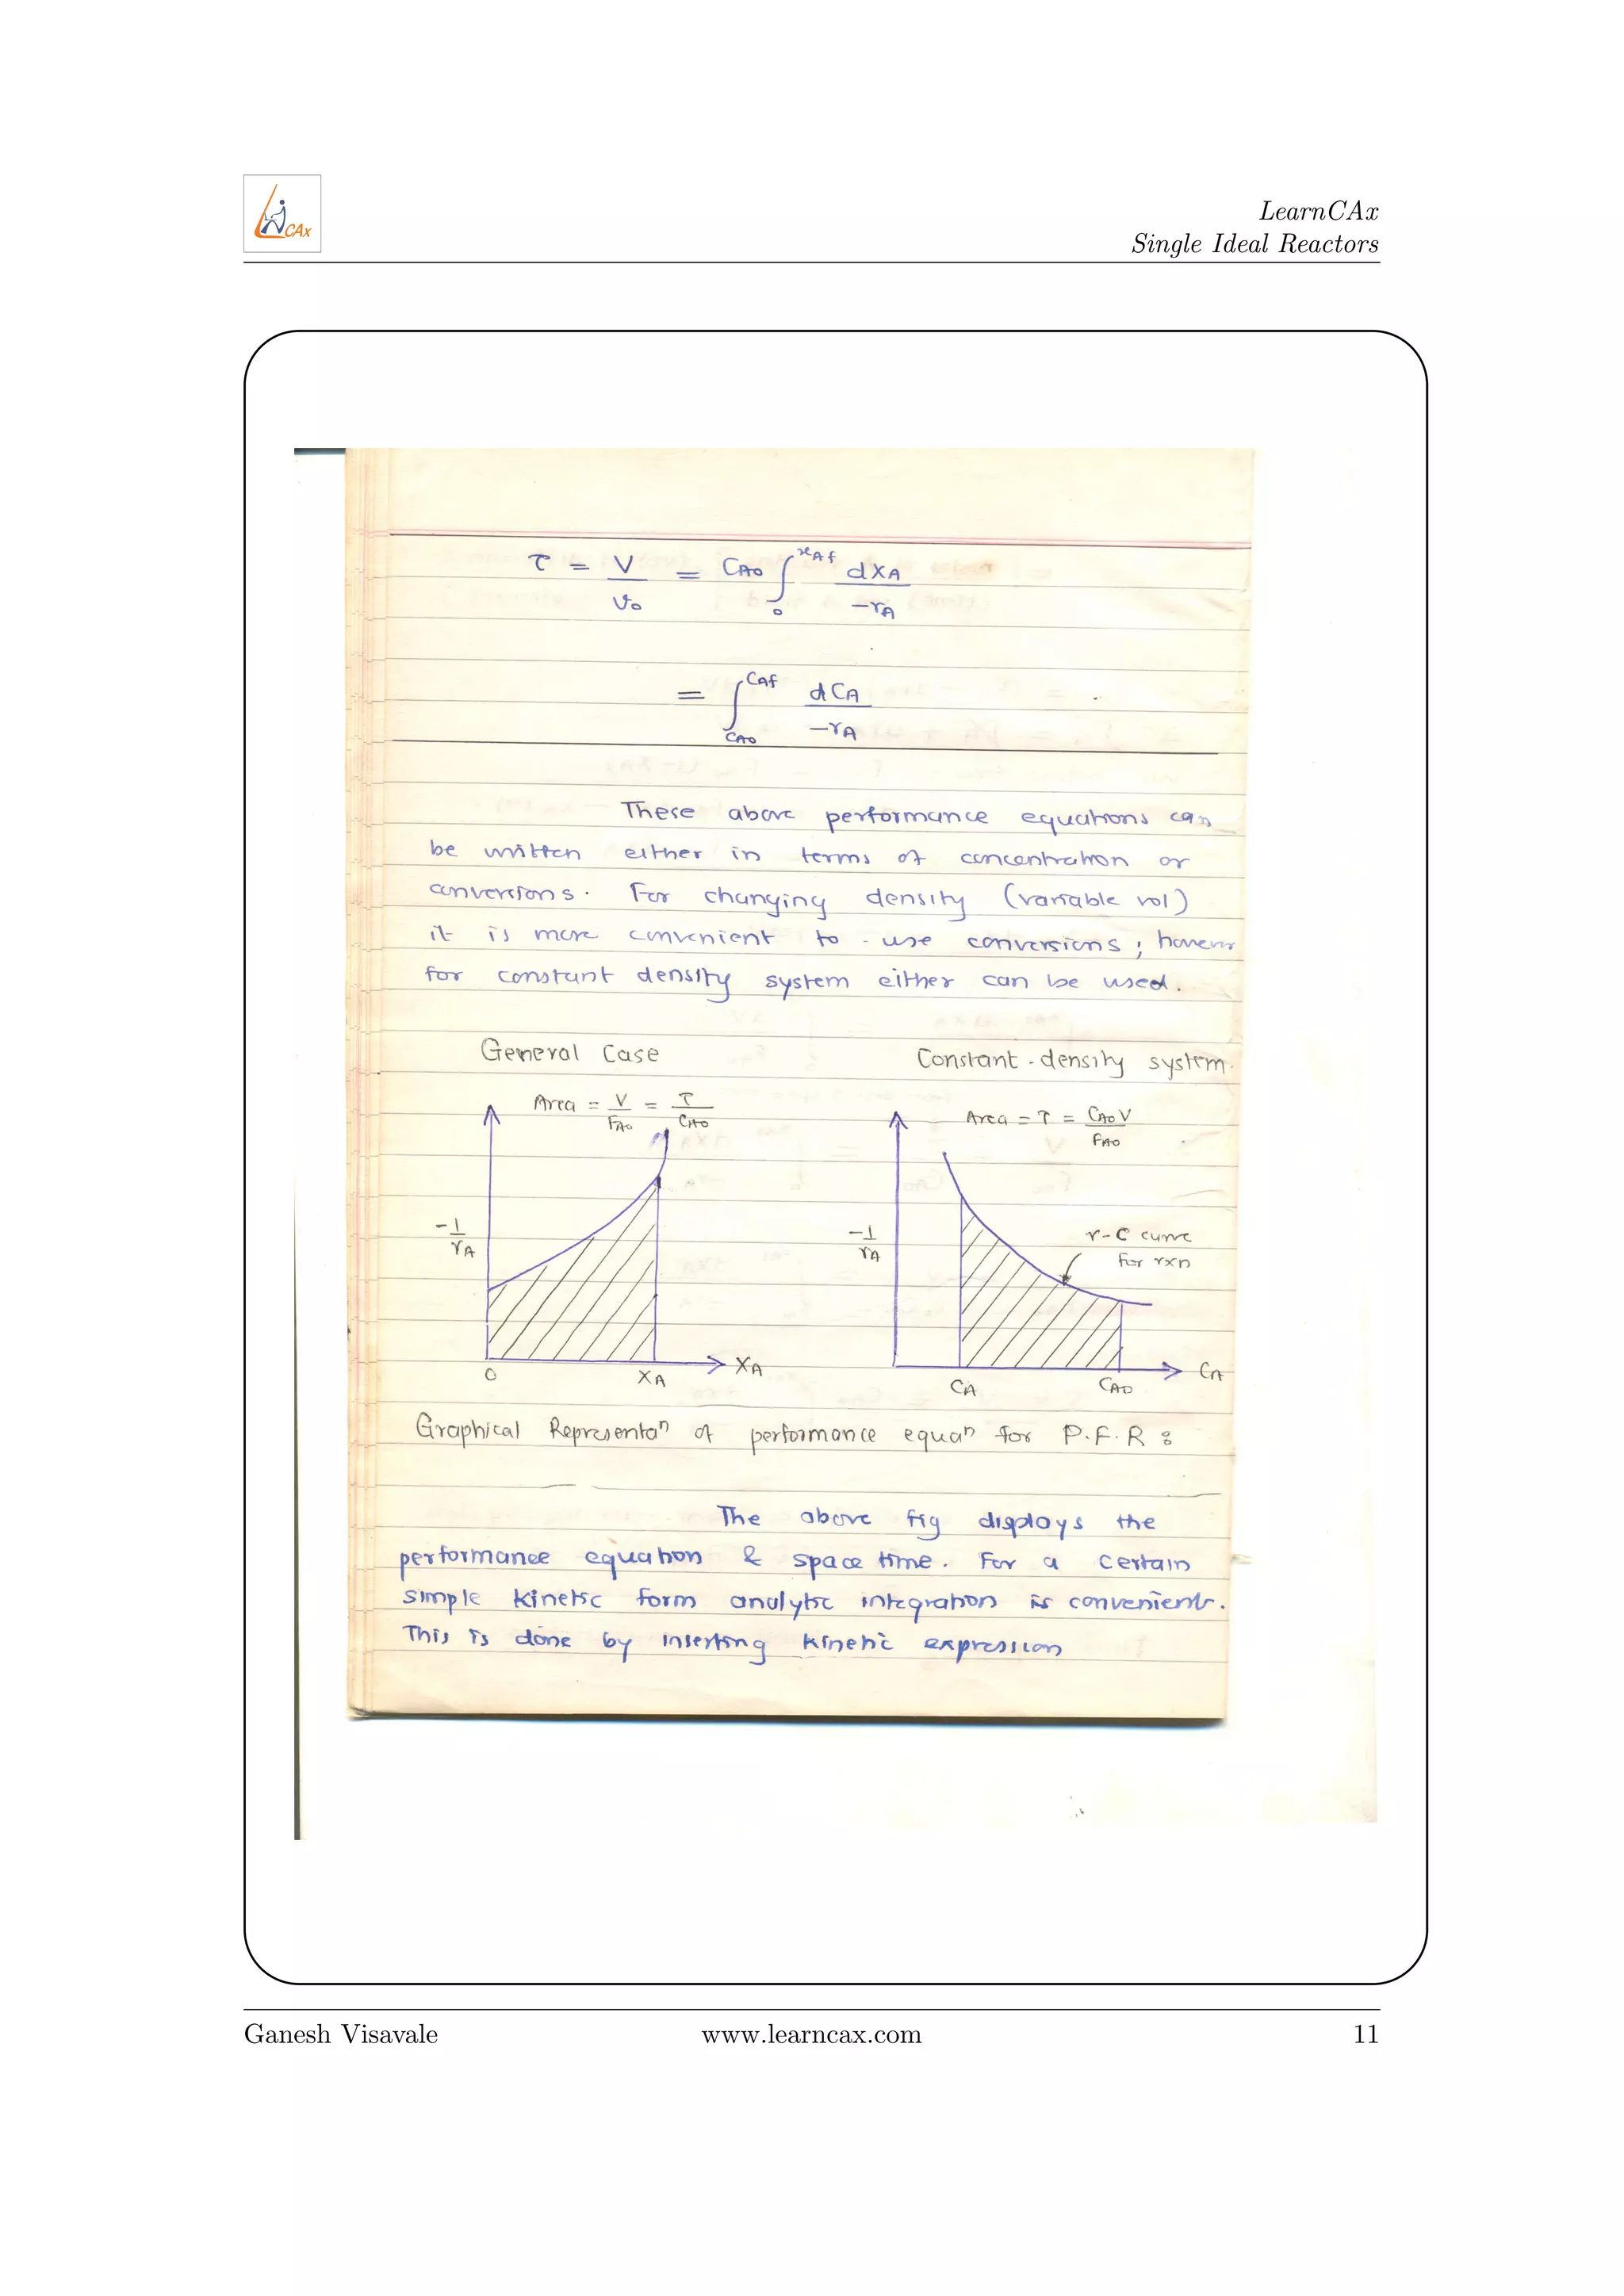 CAx
LearnCAx
Single Ideal Reactors
τ = V/v₀ = CA0 ∫₀^xAf dXA/-rA
= ∫_CA0^CAf dCA/-rA
These above performance equations can
be written either in terms of concentration or
conversions. For changing density (variable vol)
it is more convenient to use conversions ; however
for constant density system either can be used.
General Case
Area = V/FA0 = τ/CA0
-1/rA
0
XA
XA
Constant-density system.
Area = τ = CA0V/FA0
-1/rA
r-C curve
for rxn
CA
CA0
CA
Graphical Representaⁿ of performance equaⁿ for P.F.R :
The above fig displays the
performance equation & space time. For a certain
simple kinetic form analytic integration is convenient.
This is done by inserting kinetic expression
Ganesh Visavale
www.learncax.com
11